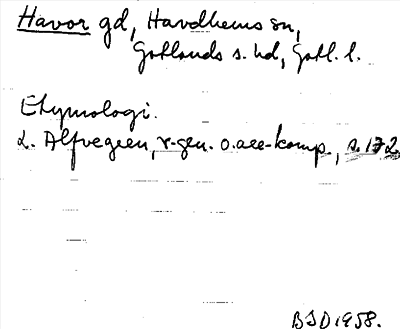 Havor gd, Havdhems sn,
Gotlands s. hd, Gotl. l.
Etymologi.
L. Alfvegren, r-gen. o. acc-komp., s. 172
BSD 1958.